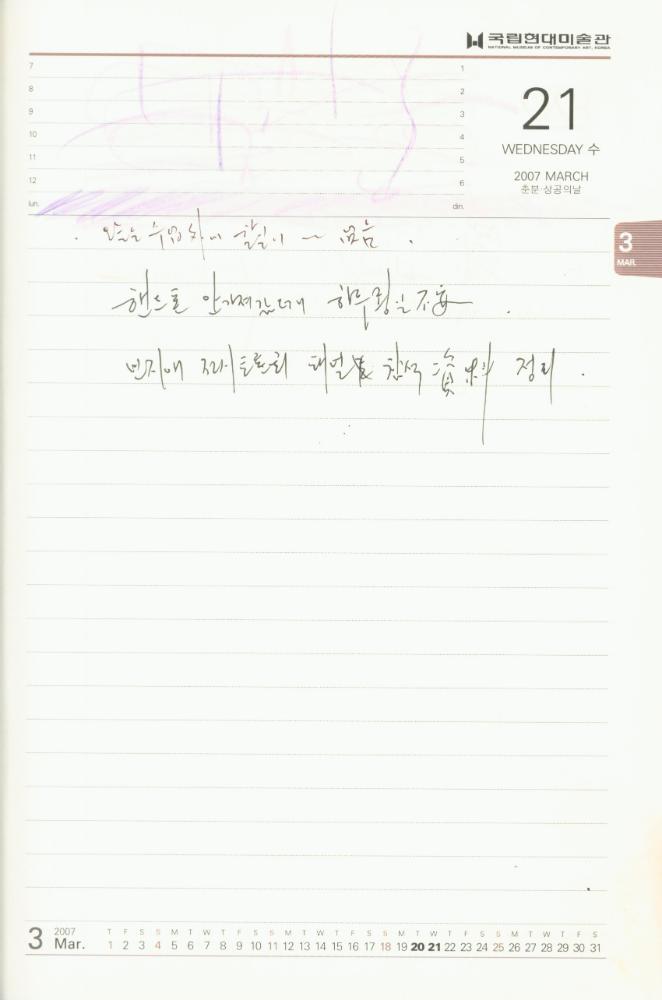 국립현대미술관
NATIONAL MUSEUM OF CONTEMPORARY ART, KOREA
7 1
8 2
9 3
10 4
11 5
12 6
lun. din.
21
WEDNESDAY 수
2007 MARCH
춘분·상공의날
3
MAR.
오늘은
핸드폰 안가져갔더니 하루종일 不安.
資料 정리.
3 2007 Mar.
T F S S M T W T F S S M T W T F S S M T W T F S S M T W T F S
1 2 3 4 5 6 7 8 9 10 11 12 13 14 15 16 17 18 19 20 21 22 23 24 25 26 27 28 29 30 31